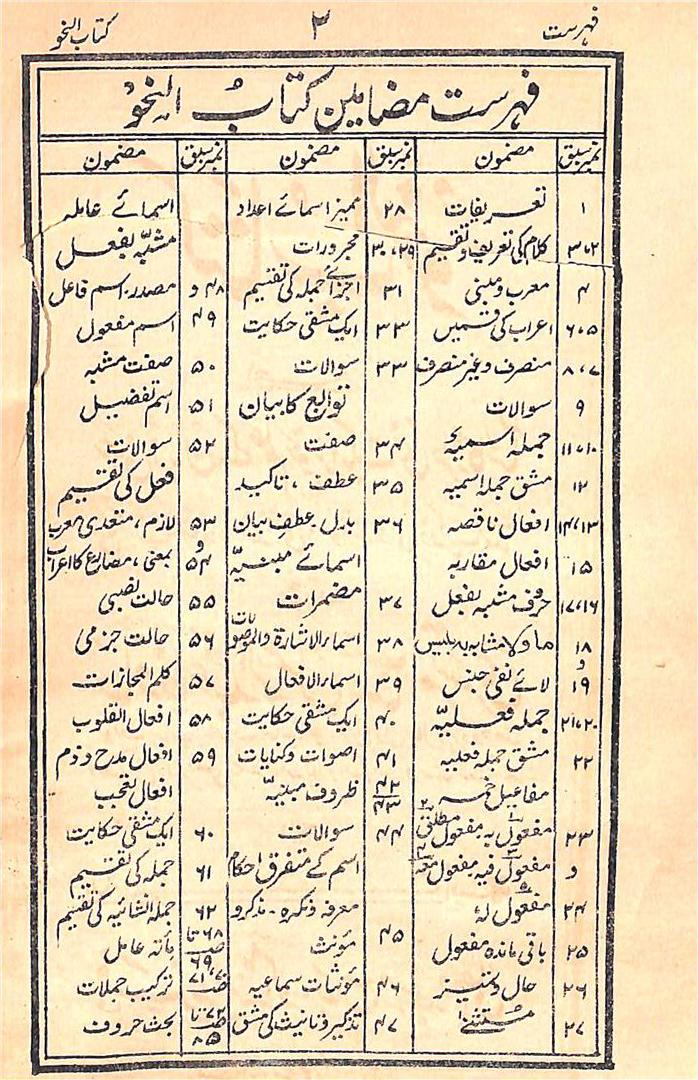 فہرست ۲ کتاب النحو
فہرست مضامین کتابُ النحوْ
نمبر سبق مضمون
۱ تعریفات
۲،۳ کلام کی تعریف و تقسیم
۴ معرب و مبنی
۵،۶ اعراب کی قسمیں
۷،۸ منصرف و غیر منصرف
۹ سوالات
۱۰،۱۱ جملہ اسمیہ
۱۲ مشق جملہ اسمیہ
۱۳،۱۴ افعال ناقصہ
۱۵ افعال مقاربہ
۱۶،۱۷ حروف مشبہ بفعل
۱۸ ما و لا مشابہ بہ لیس
و
۱۹ لائے نفی جنس
۲۰،۲۱ جملہ فعلیّہ
۲۲ مشق جملہ فعلیہ
مفاعیل خمسہ
۲۳ مفعول بہ مفعول مطلق
و مفعول فیہ مفعول معہ
۲۴ مفعول لہٗ
۲۵ باقی ماندہ مفعول
۲۶ حال و تمیز
۲۷ مستثنیٰ
نمبر سبق مضمون
۲۸ ممیز اسمائے اعداد
۲۹،۳۰ مجرورات
۳۱ اجزائے جملہ کی تقسیم
۳۳ ایک مشقی حکایت
۳۳ سوالات
توابع کا بیان
۳۴ صفت
۳۵ عطف ، تاکید
۳۶ بدل ۔ عطفِ بیان
اسمائے مبنیّہ
۳۷ مضمرات
۳۸ اسماء الاشارۃ والموصولات
۳۹ اسماء الافعال
۴۰ ایک مشقی حکایت
۴۱ اصوات و کنایات
۴۲ ۴۳ ظروف مبنیّہ
۴۴ سوالات
اسم کے متفرق احکام
معرفہ و نکرہ ۔ مذکر و
۴۵ مؤنث
۴۶ مؤنثات سماعیہ
۴۷ تذکیر و تانیث کی مشق
نمبر سبق مضمون
اسمائے عاملہ
مشبّہ بفعل
۴۸ و مصدر، اسم فاعل
۴۹ اسم مفعول
۵۰ صفت مشبہ
۵۱ اسم تفضیل
۵۲ سوالات
فعل کی تقسیم
۵۳ لازم ، متعدی، معرب
و
۵۴ مبنی ، مضارع کا اعراب
۵۵ حالت نصبی
۵۶ حالت جزمی
۵۷ کلم المجازات
۵۸ افعال القلوب
۵۹ افعال مدح و ذم
افعال تعجب
۶۰ ایک مشقی حکایت
۶۱ جملہ کی تقسیم
۶۲ جملہ انشائیہ کی تقسیم
۶۸ تا ۶۹ مأتہ عامل
۷۰، ۷۱ ترکیب جملات
۷۲ تا ۸۵ بحث حروف